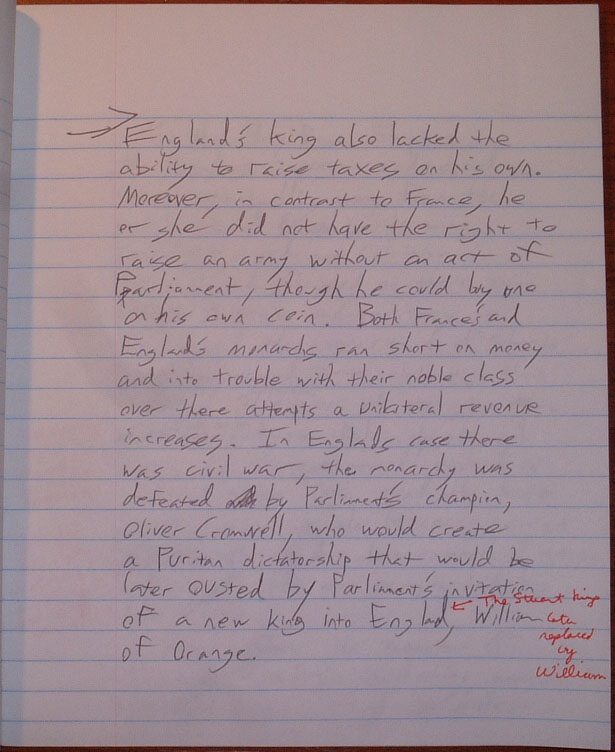 England's king also lacked the
ability to raise taxes on his own.
Moreover, in contrast to France, he
or she did not have the right to
raise an army without an act of
Parliament, though he could buy one
on his own coin. Both France's and
England's monarchs ran short on money
and into trouble with their noble class
over there attempts a unilateral revenue
increases. In Englads case there
was civil war, the monarchy was
defeated by Parliment's champion,
Oliver Cromwell, who would create
a Puritan dictatorship that would be
later ousted by Parliment's invitation
of a new king into Englad, William
of Orange.
The Stuart kings
later
replaced
by
William